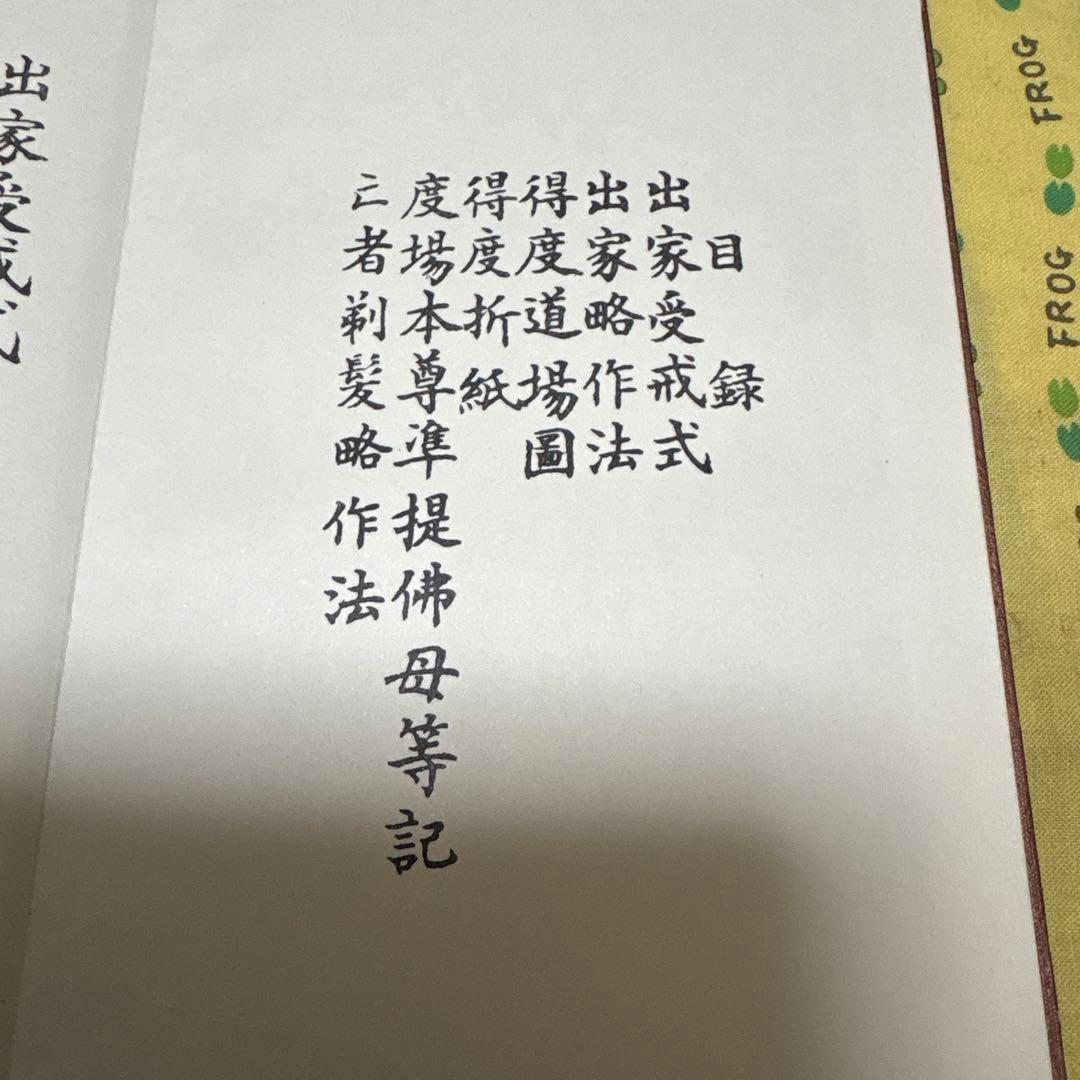 目録
出家受戒式
出家略作法
得度道場圖
得度折紙
度場本尊準提佛母等記
亡者剃髪略作法
出家受戒式
FROG
FROG